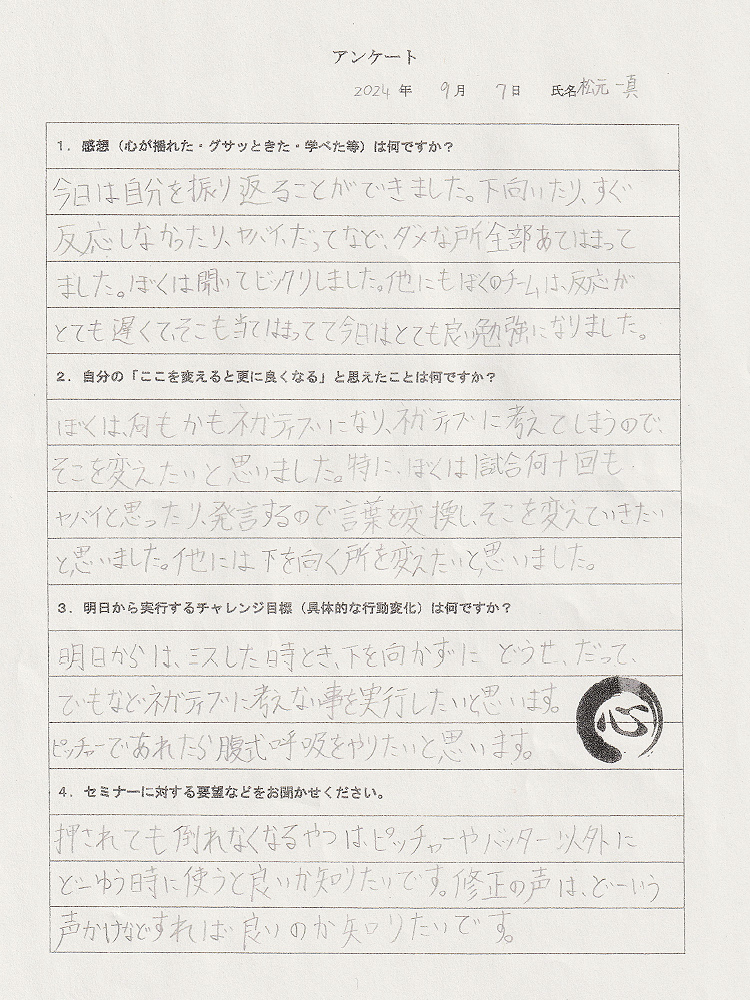 アンケート
2024 年 9月 7日 氏名 松元 一真
1．感想（心が揺れた・グサッときた・学べた等）は何ですか？
今日は自分を振り返ることができました。下向いたり、すぐ
反応しなかったり、ヤバイ、だってなど、ダメな所全部あてはまって
ました。ぼくは聞いてビックリしました。他にもぼくのチームは、反応が
とても遅くて、そこも当てはまってて今日はとても良い勉強になりました。
2．自分の「ここを変えると更に良くなる」と思えたことは何ですか？
ぼくは、何もかもネガティブになり、ネガティブに考えてしまうので、
そこを変えたいと思いました。特に、ぼくは1試合何十回も、
ヤバイと思ったり、発言するので言葉を変換し、そこを変えていきたい
と思いました。他には下を向く所を変えたいと思いました。
3．明日から実行するチャレンジ目標（具体的な行動変化）は何ですか？
明日からは、ミスした時とき、下を向かずに どうせ、だって、
でもなどネガティブに考えない事を実行したいと思います。
ピッチャーであれたら腹式呼吸をやりたいと思います。
心
4．セミナーに対する要望などをお聞かせください。
押されても倒れなくなるやつは、ピッチャーやバッター以外に
どーゆう時に使うと良いか知りたいです。修正の声は、どーいう
声かけなどすれば良いのか知りたいです。